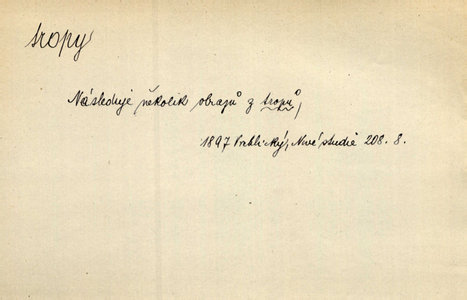 tropy
Následuje několik obrazů z tropů,
1897 Nové studie 208. 8.